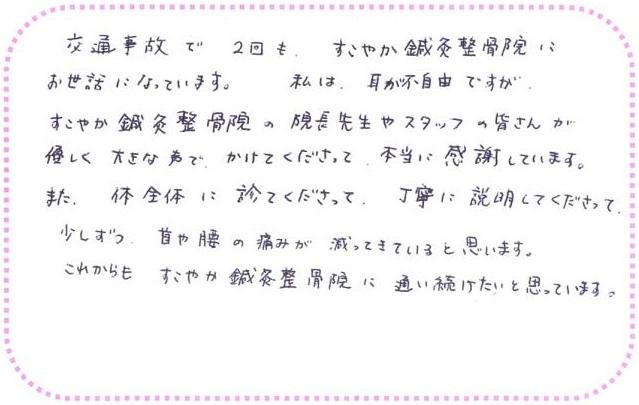 交通事故で 2回も、すこやか鍼灸整骨院に
お世話になっています。 私は、耳が不自由ですが、
すこやか鍼灸整骨院の院長先生やスタッフの皆さんが
優しく 大きな声で、かけてくださって、本当に感謝しています。
また、体全体に診てくださって、丁寧に説明してくださって、
少しずつ、首や腰の痛みが 減ってきていると思います。
これからも すこやか鍼灸整骨院に通い続けたいと思っています。